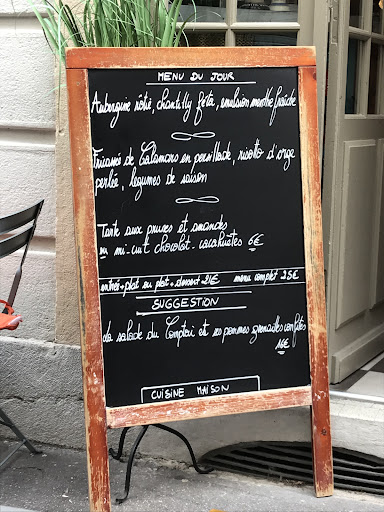 MENU DU JOUR
Aubergine rôtie, chantilly féta, émulsion menthe fraîche
Fricassée de Calamars en persillade, risotto d'orge
perlée, légumes de saison
Tarte aux prunes et amandes
ou mi-cuit chocolat-cacahuètes 6€
entrée+plat ou plat+dessert 21€ menu complet 25€
SUGGESTION
La salade du Comptoir et ses pommes grenailles confites
16€
CUISINE MAISON